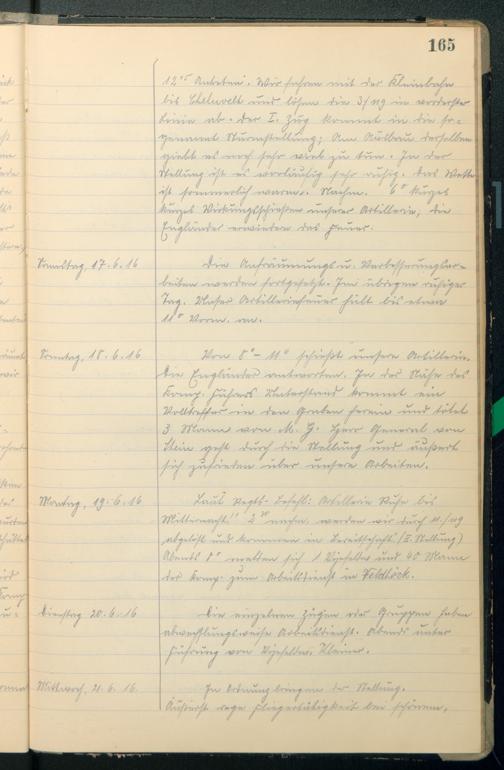 165
12°⁵ Antreten. Wir fahren mit der Kleinbahn
bis und lösen die 3/119 in vorderster
Linie ab. Der I. Zug kommt in die so-
genannt Sturmstellung; Am derselben
giebt es noch sehr viel zu tun. In der
Stellung ist es vorläufig sehr ruhig. Das Wetter
ist sommerlich warm. Nachm. 6° kurzes
kurzes Wirkungsschießen unserer Artillerie, die
Engländer erwiedern das Feuer.
Samstag, 17.6.16
Die Aufräumungs u. Verbesserungsar-
beiten werden fortgesetzt. Im übrigen ruhiger
Tag. Unser Artilleriefeuer hält bis etwa
11° Vorm. an.
Sonntag, 18.6.16
Von 8°–11° schießt unsere Artillerie.
Die Engländer antworten. In der Nähe des
Komp. Führers Unterstand kommt ein
Volltreffer in den Graben herein und tötet
3 Mann vom M.G. Herr General von
Stein geht durch die Stellung und äußert
sich zufrieden über unsere Arbeiten.
Montag, 19.6.16
Laut Regts-Befehl: Artillerie Ruhe bis
Mitternacht! 2³⁰ nachm. werden wir durch /119
abgelöst und kommen in Bereitschaft (II. Stellung)
Abends 8° melden sich 1 Vizefeldw. und 40 Mann
der Komp. zum Arbeitsdienst in Feldhöck.
Dienstag 20.6.16
Die einzelnen Zügen oder Gruppen haben
abwechslungsweise Arbeitsdienst. Abends unter
Führung von Vizefeldw. Kleiner.
Mittwoch, 21.6.16.
In Ordnung bringen der Stellung.
Äußerst rege Fliegertätigkeit bei schönem,